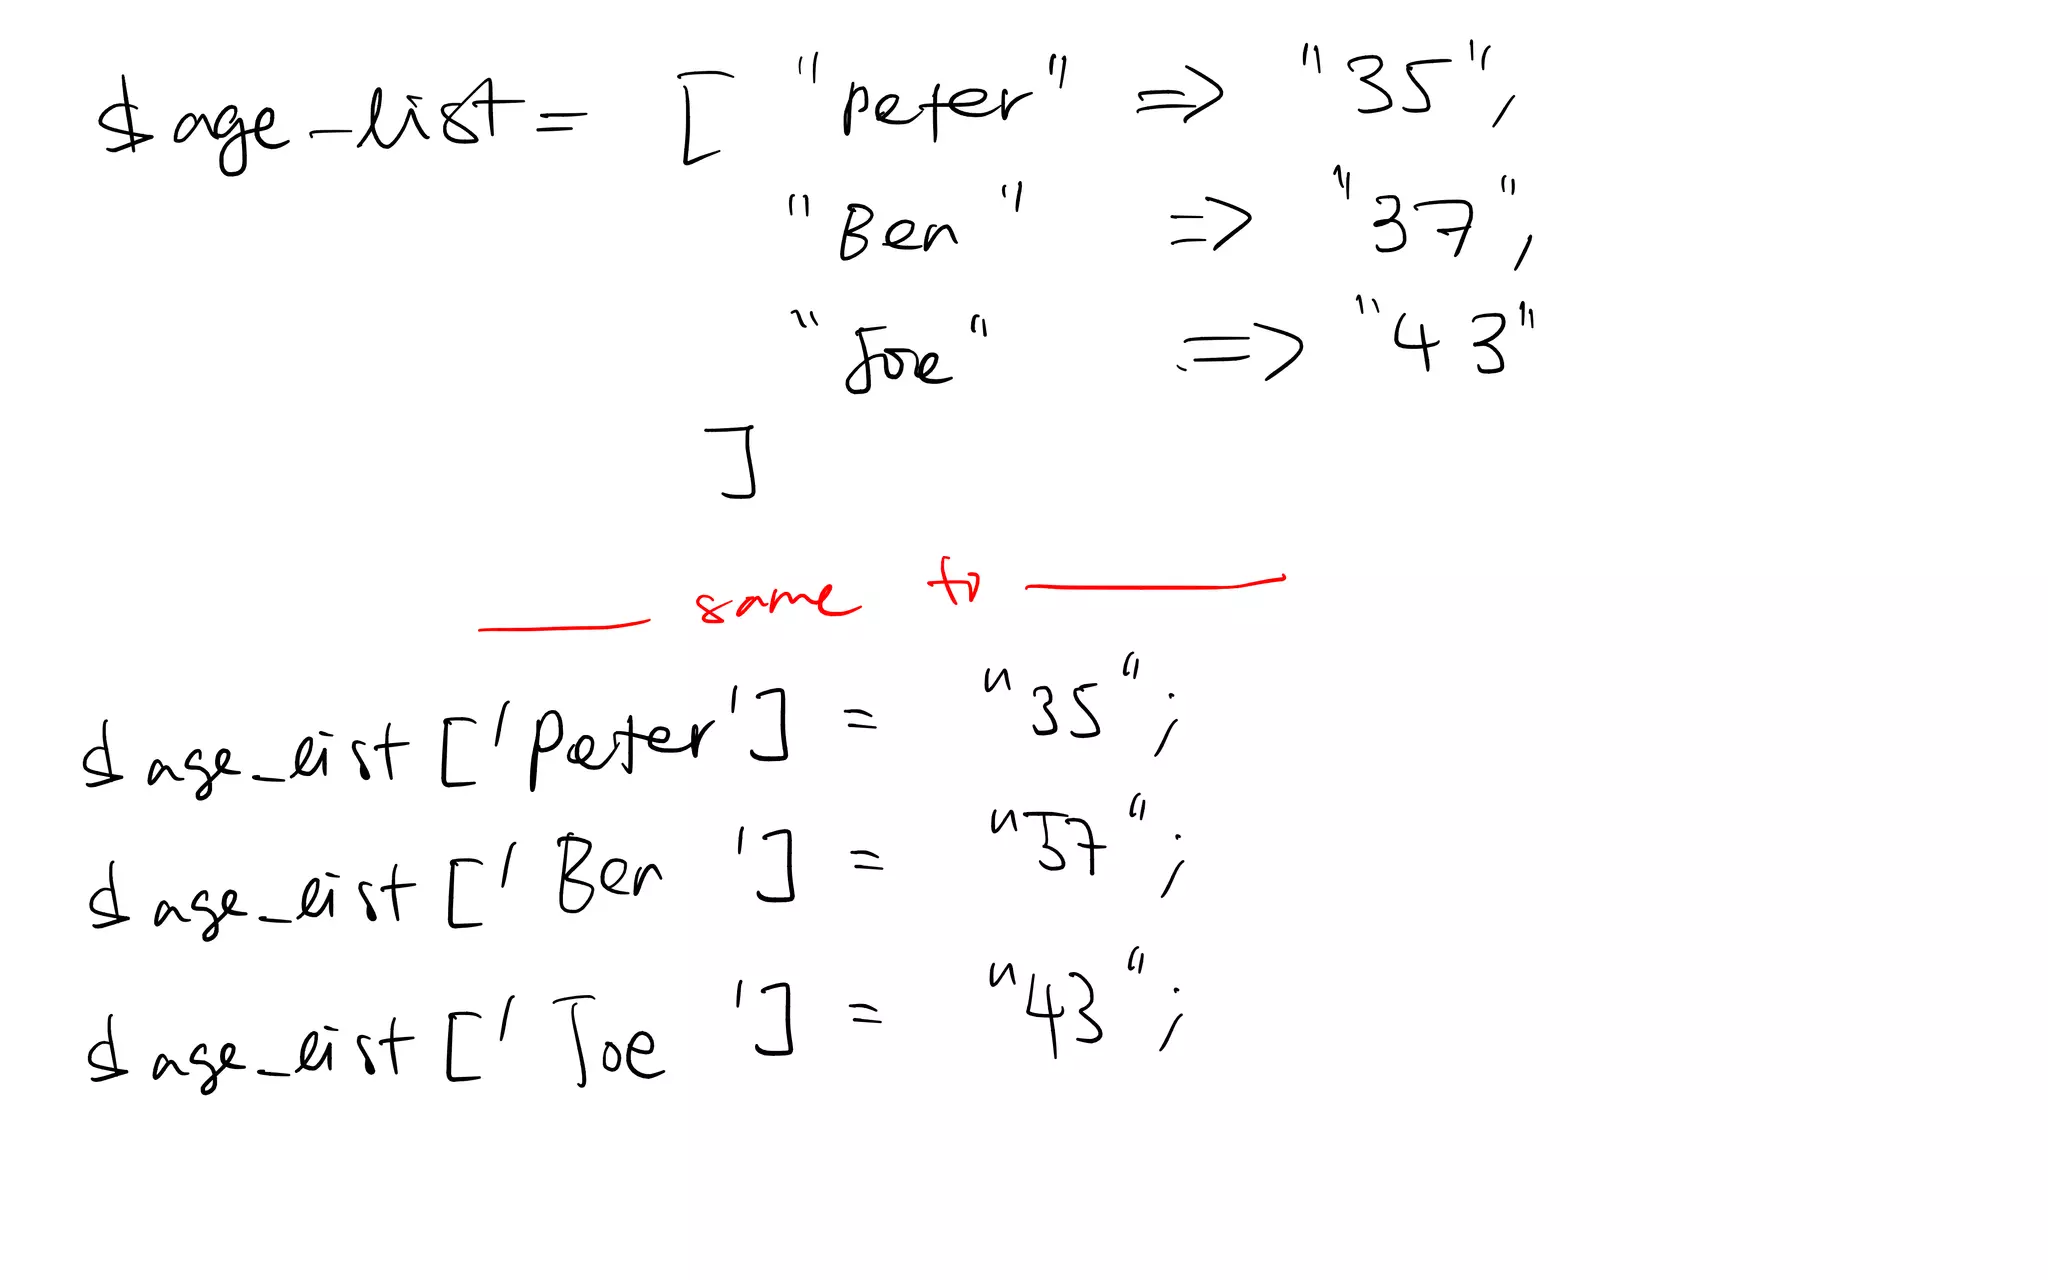 $age_list = [ "peter" => "35",
"Ben" => "37",
"Joe" => "43"
]
same to
$age_list['Peter'] = "35";
$age_list['Ben'] = "37";
$age_list['Joe'] = "43";